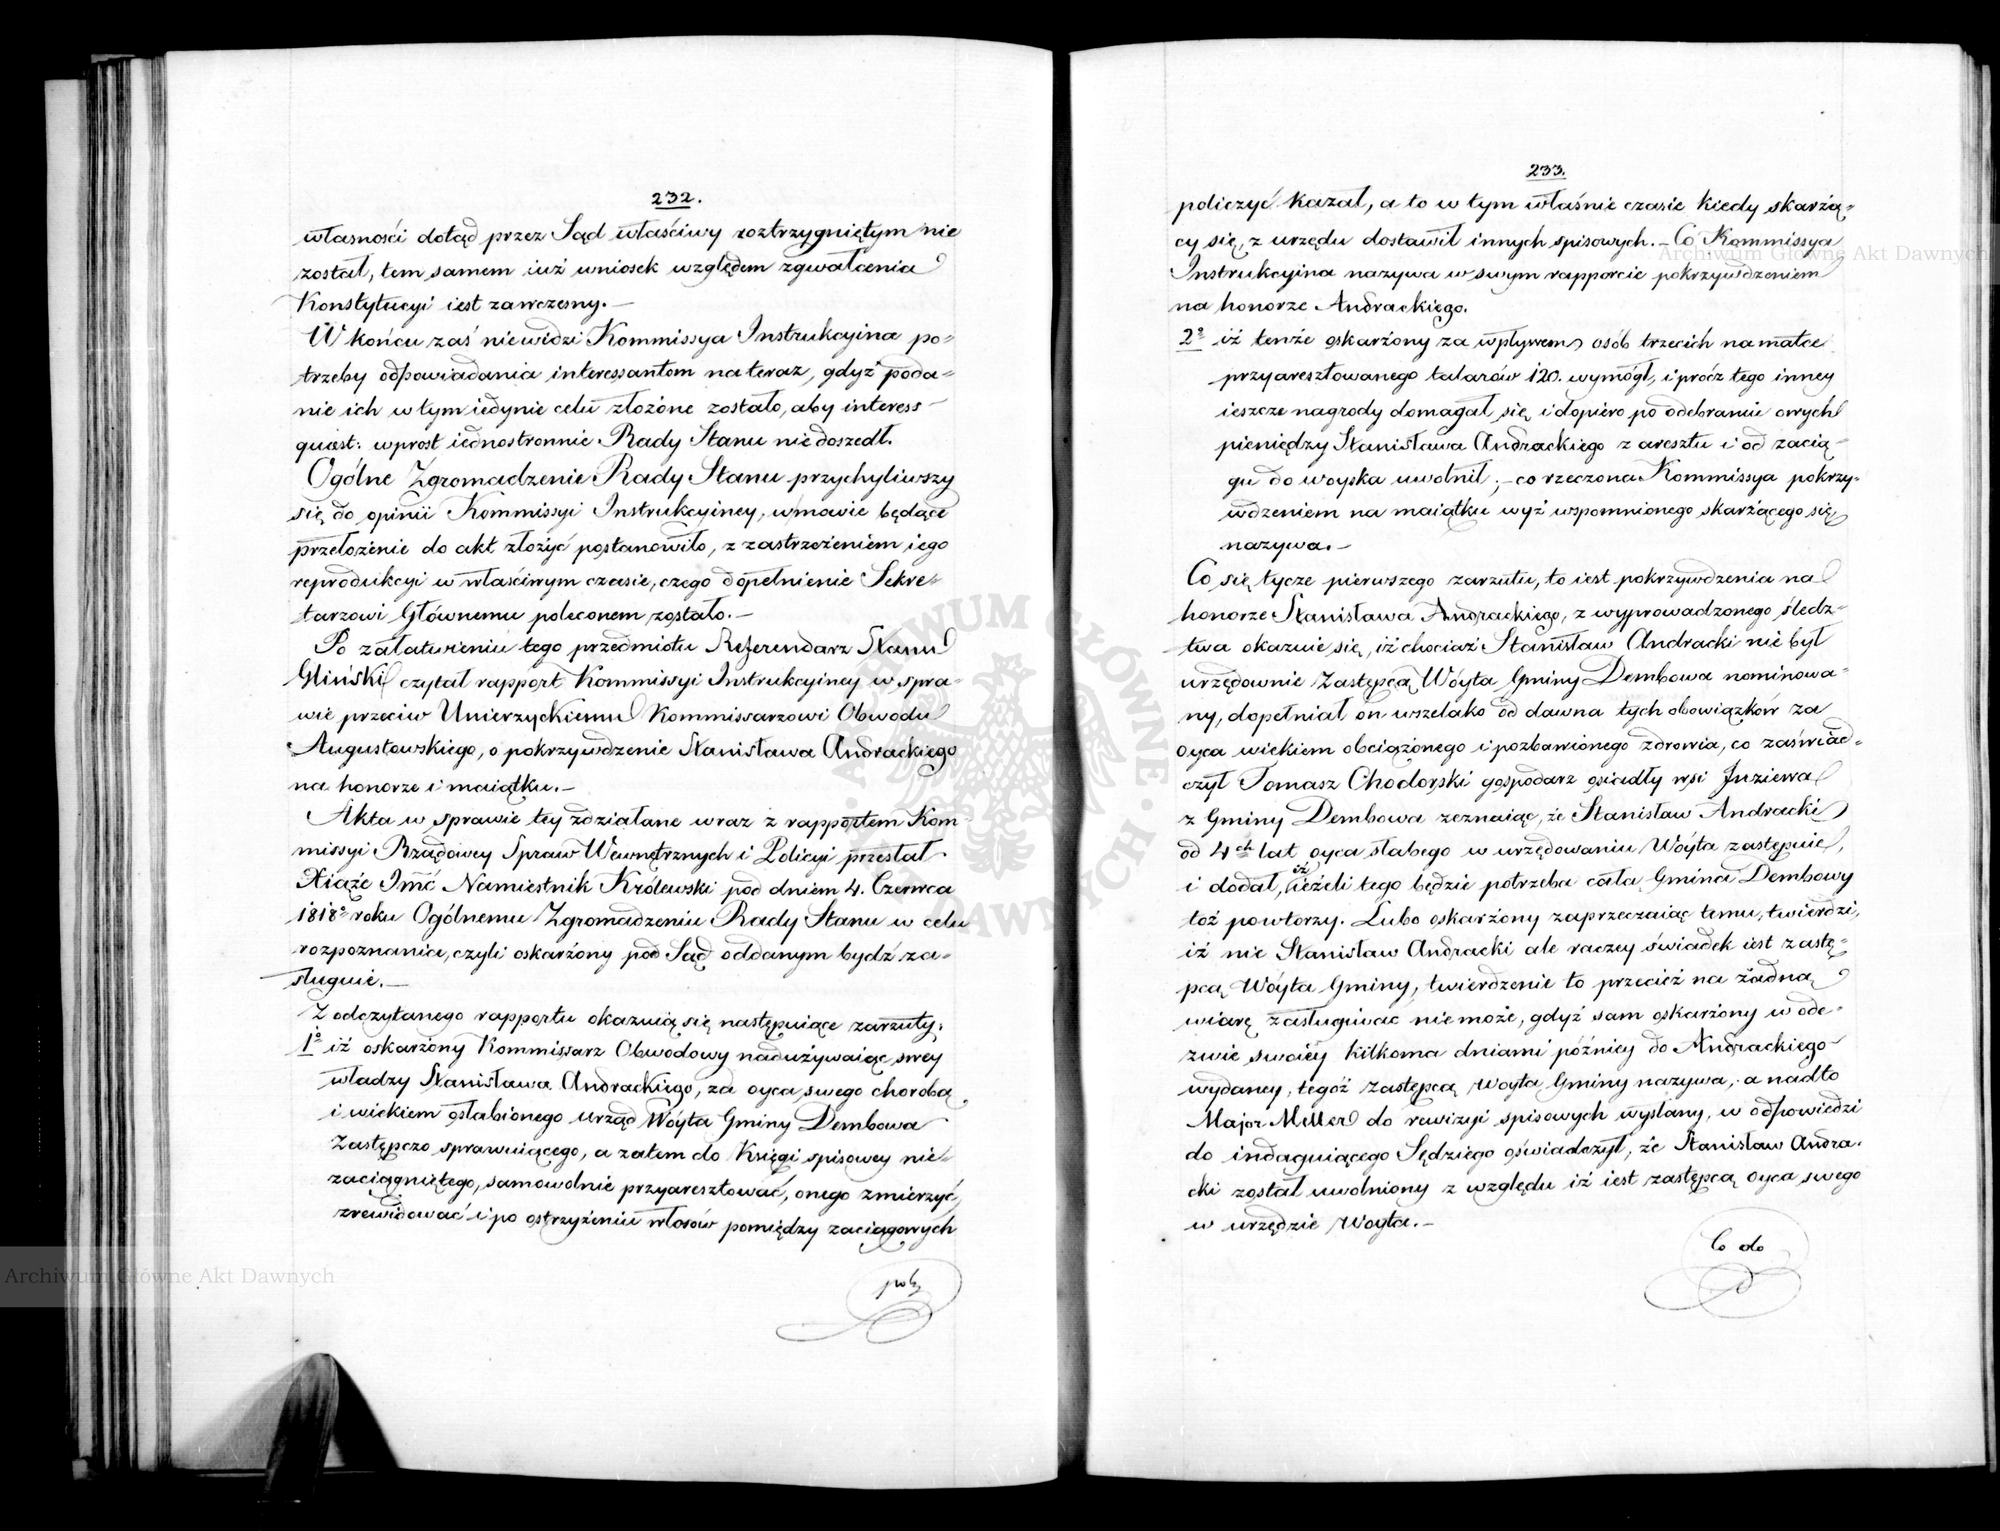 232.
własności dotąd przez Sąd właściwy roztrzygniętym nie
został, tem samem iuż wniosek względem zgwałcenia
Konstytucyi iest zawczesny. —
W końcu zaś niewidzi Kommissya Instrukcyina po-
trzeby odpowiadania interessantom na teraz, gdyż poda-
nie ich w tym iedynie celu złożone zostało, aby interess
quæst: wprost iednostronnie Rady Stanu nie doszedł.
Ogólne Zgromadzenie Rady Stanu przychyliwszy
się do opinii Kommissyi Instrukcyiney, w mowie będące
przełożenie do akt złożyć postanowiło, z zastrzeżeniem iego
reprodukcyi w właściwym czasie, czego dopełnienie Sekre-
tarzowi Głównemu poleconem zostało. —
Po załatwieniu tego przedmiotu Referendarz Stanu
Gliński czytał rapport Kommissyi Instrukcyiney w spra-
wie przeciw Unierzyckiemu Kommissarzowi Obwodu
Augustowskiego, o pokrzywdzenie Stanisława Andrackiego
na honorze i maiątku. —
Akta w sprawie tey zdziałane wraz z rapportem Kom-
missyi Rządowey Spraw Wewnętrznych i Policyi przesłał
Xiąże Imć Namiestnik Królewski pod dniem 4. Czerwca
1818º roku Ogólnemu Zgromadzeniu Rady Stanu w celu
rozpoznania, czyli oskarżony pod Sąd oddanym bydź za-
sługuie. —
Z odczytanego rapportu okazuią się następuiące zarzuty:
1º iż oskarżony Kommissarz Obwodowy nadużywaiąc swey
władzy Stanisława Andrackiego, za oyca swego chorobą
i wiekiem osłabionego urząd Wóyta Gminy Dembowa
Zastępczo sprawuiącego, a zatem do Księgi spisowey nie-
zaciągniętego, samowolnie przyaresztować, onego zmierzyć,
zrewidować i po ostrzyżeniu włosów pomiędzy zaciągowych
poli
233.
policzyć kazał, a to w tym właśnie czasie kiedy skarżą-
cy się, z urzędu dostawił innych spisowych. — Co Kommissya
Instrukcyina nazywa w swym rapporcie pokrzywdzeniem
na honorze Andrackiego.
2º iż tenże oskarżony za wpływem osób trzecich na matce
przyaresztowanego talarów 120. wymógł, i prócz tego inney
ieszcze nagrody domagał się i dopiero po odebraniu owych
pieniędzy Stanisława Andrackiego z aresztu i od zacią-
gu do woyska uwolnił; — co rzeczona Kommissya pokrzy-
wdzeniem na maiątku wyż wspomnionego skarżącego się,
nazywa. —
Co się tycze pierwszego zarzutu, to iest pokrzywdzenia na
honorze Stanisława Andrackiego, z wyprowadzonego śledz-
twa okazuie się, iż chociaż Stanisław Andracki nie był
urzędownie Zastępcą Wóyta Gminy Dembowa nominowa-
ny, dopełniał on wszelako od dawna tych obowiązków za
oyca wiekiem obciążonego i pozbawionego zdrowia, co zaświad-
czył Tomasz Chodorski gospodarz osiadły wsi Juziewa
z Gminy Dembowa zeznaiąc, że Stanisław Andracki
od 4ch lat oyca słabego w urzędowaniu Wóyta zastępuie,
i dodał, iż ieżeli tego będzie potrzeba cała Gmina Dembowy
toż powtorzy. Lubo oskarżony zaprzeczaiąc temu, twierdzi,
iż nie Stanisław Andracki ale raczey świadek iest zastę-
pcą Wóyta Gminy, twierdzenie to przecież na żadną
wiarę zasługiwać nie może, gdyż sam oskarżony w ode-
zwie swoiey kilkoma dniami późniey do Andrackiego
wydaney, tegóż zastępcą Woyta Gminy nazywa, a nadto
Major Meller do rewizyi spisowych wysłany, w odpowiedzi
do indaguiącego Sędziego oświadczył, że Stanisław Andra-
cki został uwolniony z względu iż iest zastępcą oyca swego
w urzędzie Woyta. —
Co do
Archiwum Główne Akt Dawnych
Archiwum Główne Akt Dawnych
ARCHIWUM GŁÓWNE AKT DAWNYCH